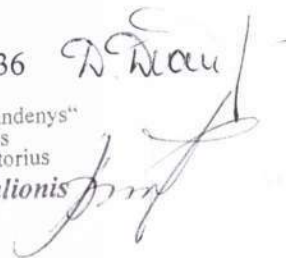 36
andenys“
s
torius
lionis